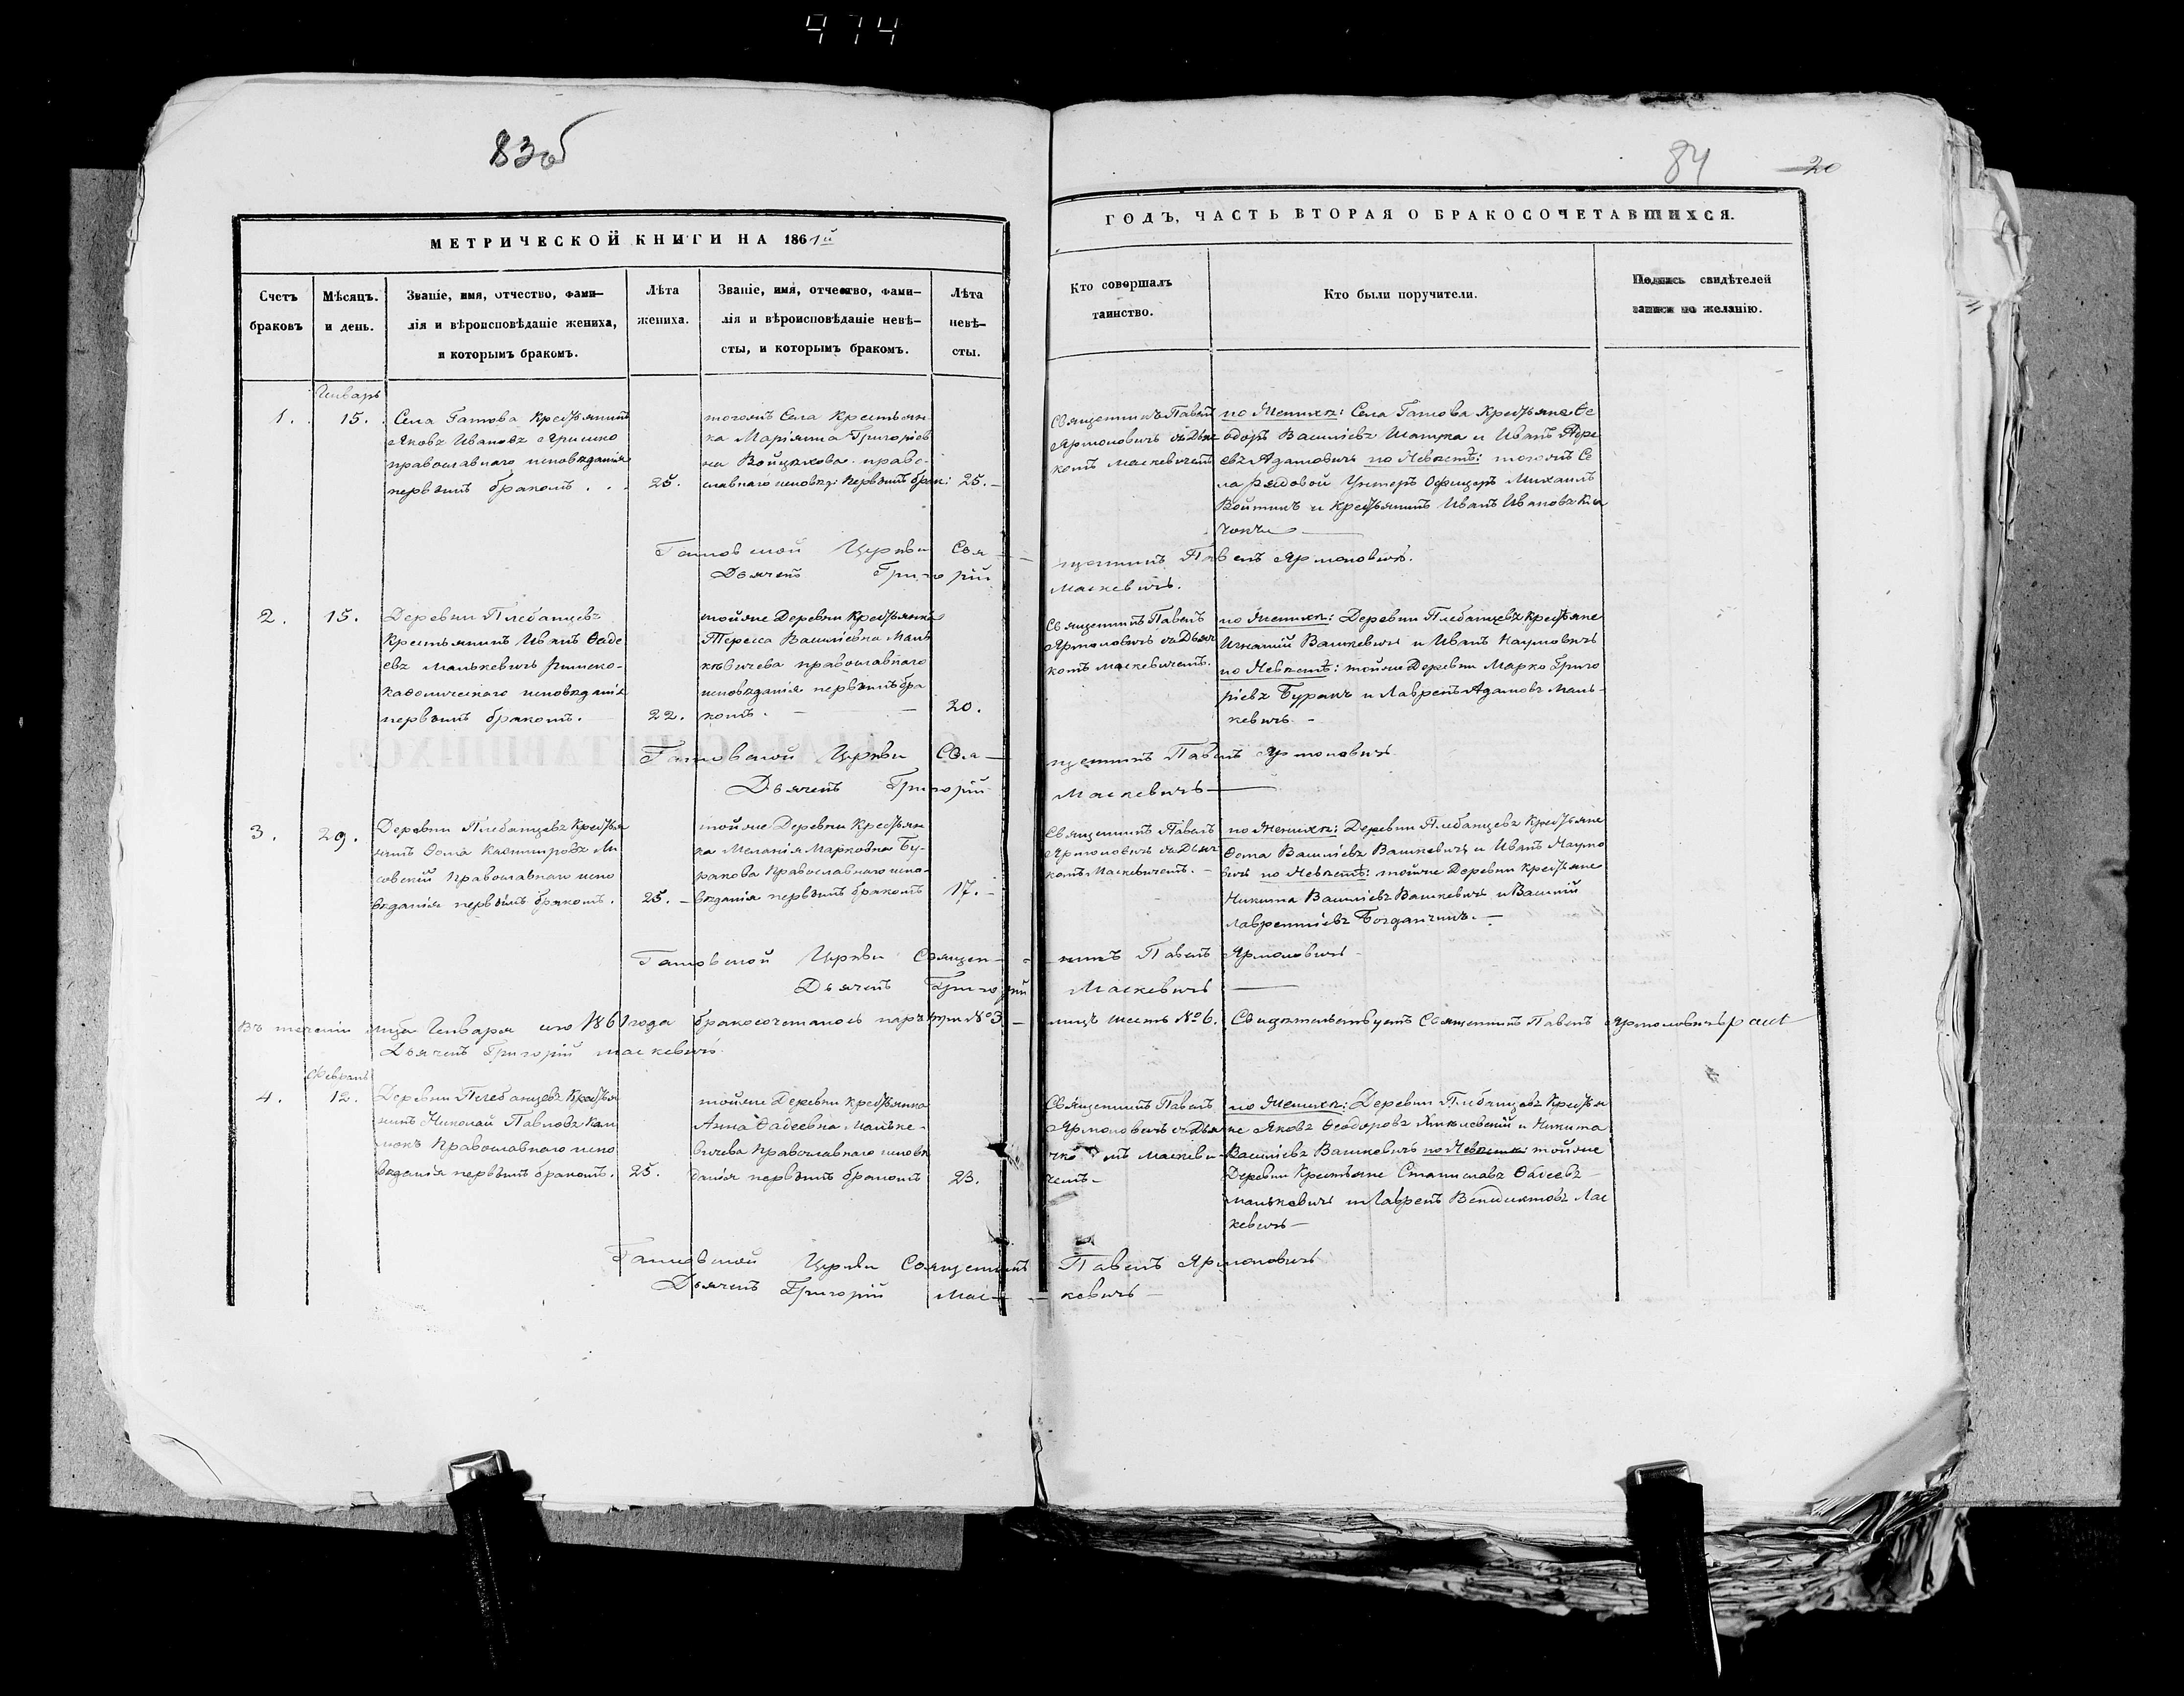 474
83об
84
20
МЕТРИЧЕСКОЙ КНИГИ НА 1861й
ГОДЪ, ЧАСТЬ ВТОРАЯ О БРАКОСОЧЕТАВШИХСЯ.
Счетъ браковъ
Мѣсяцъ. и день.
Званіе, имя, отчество, фами-
лія и вѣроисповѣданіе жениха,
и которымъ бракомъ.
Лѣта жениха.
Званіе, имя, отчество, фами-
лія и вѣроисповѣданіе невѣ-
сты, и которымъ бракомъ.
Лѣта невѣ-
сты.
Кто совершалъ
таинство.
Кто были поручители.
Подпись свидѣтелей
записи по желанію.
Январь
1.
15.
Села Гатова Крестьянинъ
Яковъ Ивановъ Яришко
православнаго исповѣданія
первымъ бракомъ
25.
тогожъ Села Крестьян
ка Маріянна Григоріев
на Войцехова право-
славнаго исповѣд: первымъ брак:
25.
Священникъ Павелъ
Ярмоловичъ съ Дьяч
комъ Маскевичемъ
по Женихѣ: Села Гатова Крестьяне Ѳе
одоръ Васильевъ Шатка и Иванъ Андре
евъ Адамовичъ по Невѣстѣ: тогожъ Се
ла рядовой Унтеръ Офицеръ Михаилъ
Войтикъ и Крестьянинъ Иванъ Ивановъ
Гатовской Церкви Свя-
щенникъ Павелъ Ярмоловичъ.
Дьячекъ Григорій
Маскевичъ.
2.
15.
Деревни Плебанцевъ
Крестьянинъ Иванъ Ѳаде
евъ Манькевичъ римско-
католическаго исповѣданія
первымъ бракомъ.
22.
тойже Деревни Крестьянка
Тереса Васильевна Мань
кѣвичева православнаго
исповѣданія первымъ бра
комъ.
20.
Священникъ Павелъ
Ярмоловичъ съ Дьяч
комъ Маскевичемъ.
по Женихѣ: Деревни Плебанцевъ Крестьяне
Игнатій Вашкевичъ и Иванъ Наумовичъ
по Невѣстѣ: тойже Деревни Марко Григо
ріевъ Буракъ и Лавренъ Адамовъ Мань-
кевичъ
Гатовской Церкви Свя-
щенникъ Павелъ Ярмоловичъ
Дьячекъ Григорій
Маскевичъ
3.
29.
Деревни Плебанцевъ Крестья
нинъ Ѳома Казимировъ Ли
совскій Православнаго испо
вѣданія первымъ бракомъ.
25.
тойже Деревни Крестьян
ка Меланія Марковна Бу-
ракова Православнаго испо-
вѣданія первымъ бракомъ
17.
Священникъ Павелъ
Ярмоловичъ съ Дьяч
комъ Маскевичемъ.
по Женихѣ: Деревни Плебанцевъ Крестьяне
Ѳома Васильевъ Вашкевичъ и Иванъ Наумо
вичъ по Невѣстѣ: тойже Деревни Крестьяне
Никита Васильевъ Вашкевичъ и Василій
Лаврентіевъ Богданчикъ.
Гатовской Церкви Священ-
никъ Павелъ Ярмоловичъ
Дьячекъ Григорій
Маскевичъ
Въ теченіи м-ца Января сего 1861 года бракосочеталось паръ три №3
лицъ шесть №6. Свидѣтельствуетъ Священникъ Павелъ Ярмоловичъ
Дьячекъ Григорій Маскевичъ.
Февраль
4.
12.
Деревни Плебанцевъ Крестья
нинъ Николай Павловъ Кли
мокъ Православнаго испо
вѣданія первымъ бракомъ.
25.
тойже Деревни Крестьянка
Анна Ѳадеевна Манькe-
вичева Православнаго исповѣ
данія первымъ бракомъ
23.
Священникъ Павелъ
Ярмоловичъ съ Дья
чкомъ Маскеви-
чемъ
по Женихѣ: Деревни Плебанцевъ Крестья
не Яковъ Ѳеодоровъ и Никита
Васильевъ Вашкевичъ по Невѣстѣ тойже
Деревни Крестьяне Станиславъ Ѳадеевъ
Манькевичъ и Лавренъ Венедиктовъ Мас
кевичъ
Гатовской Церкви Священникъ
Павелъ Ярмоловичъ
Дьячекъ Григорій Мас-
кевичъ